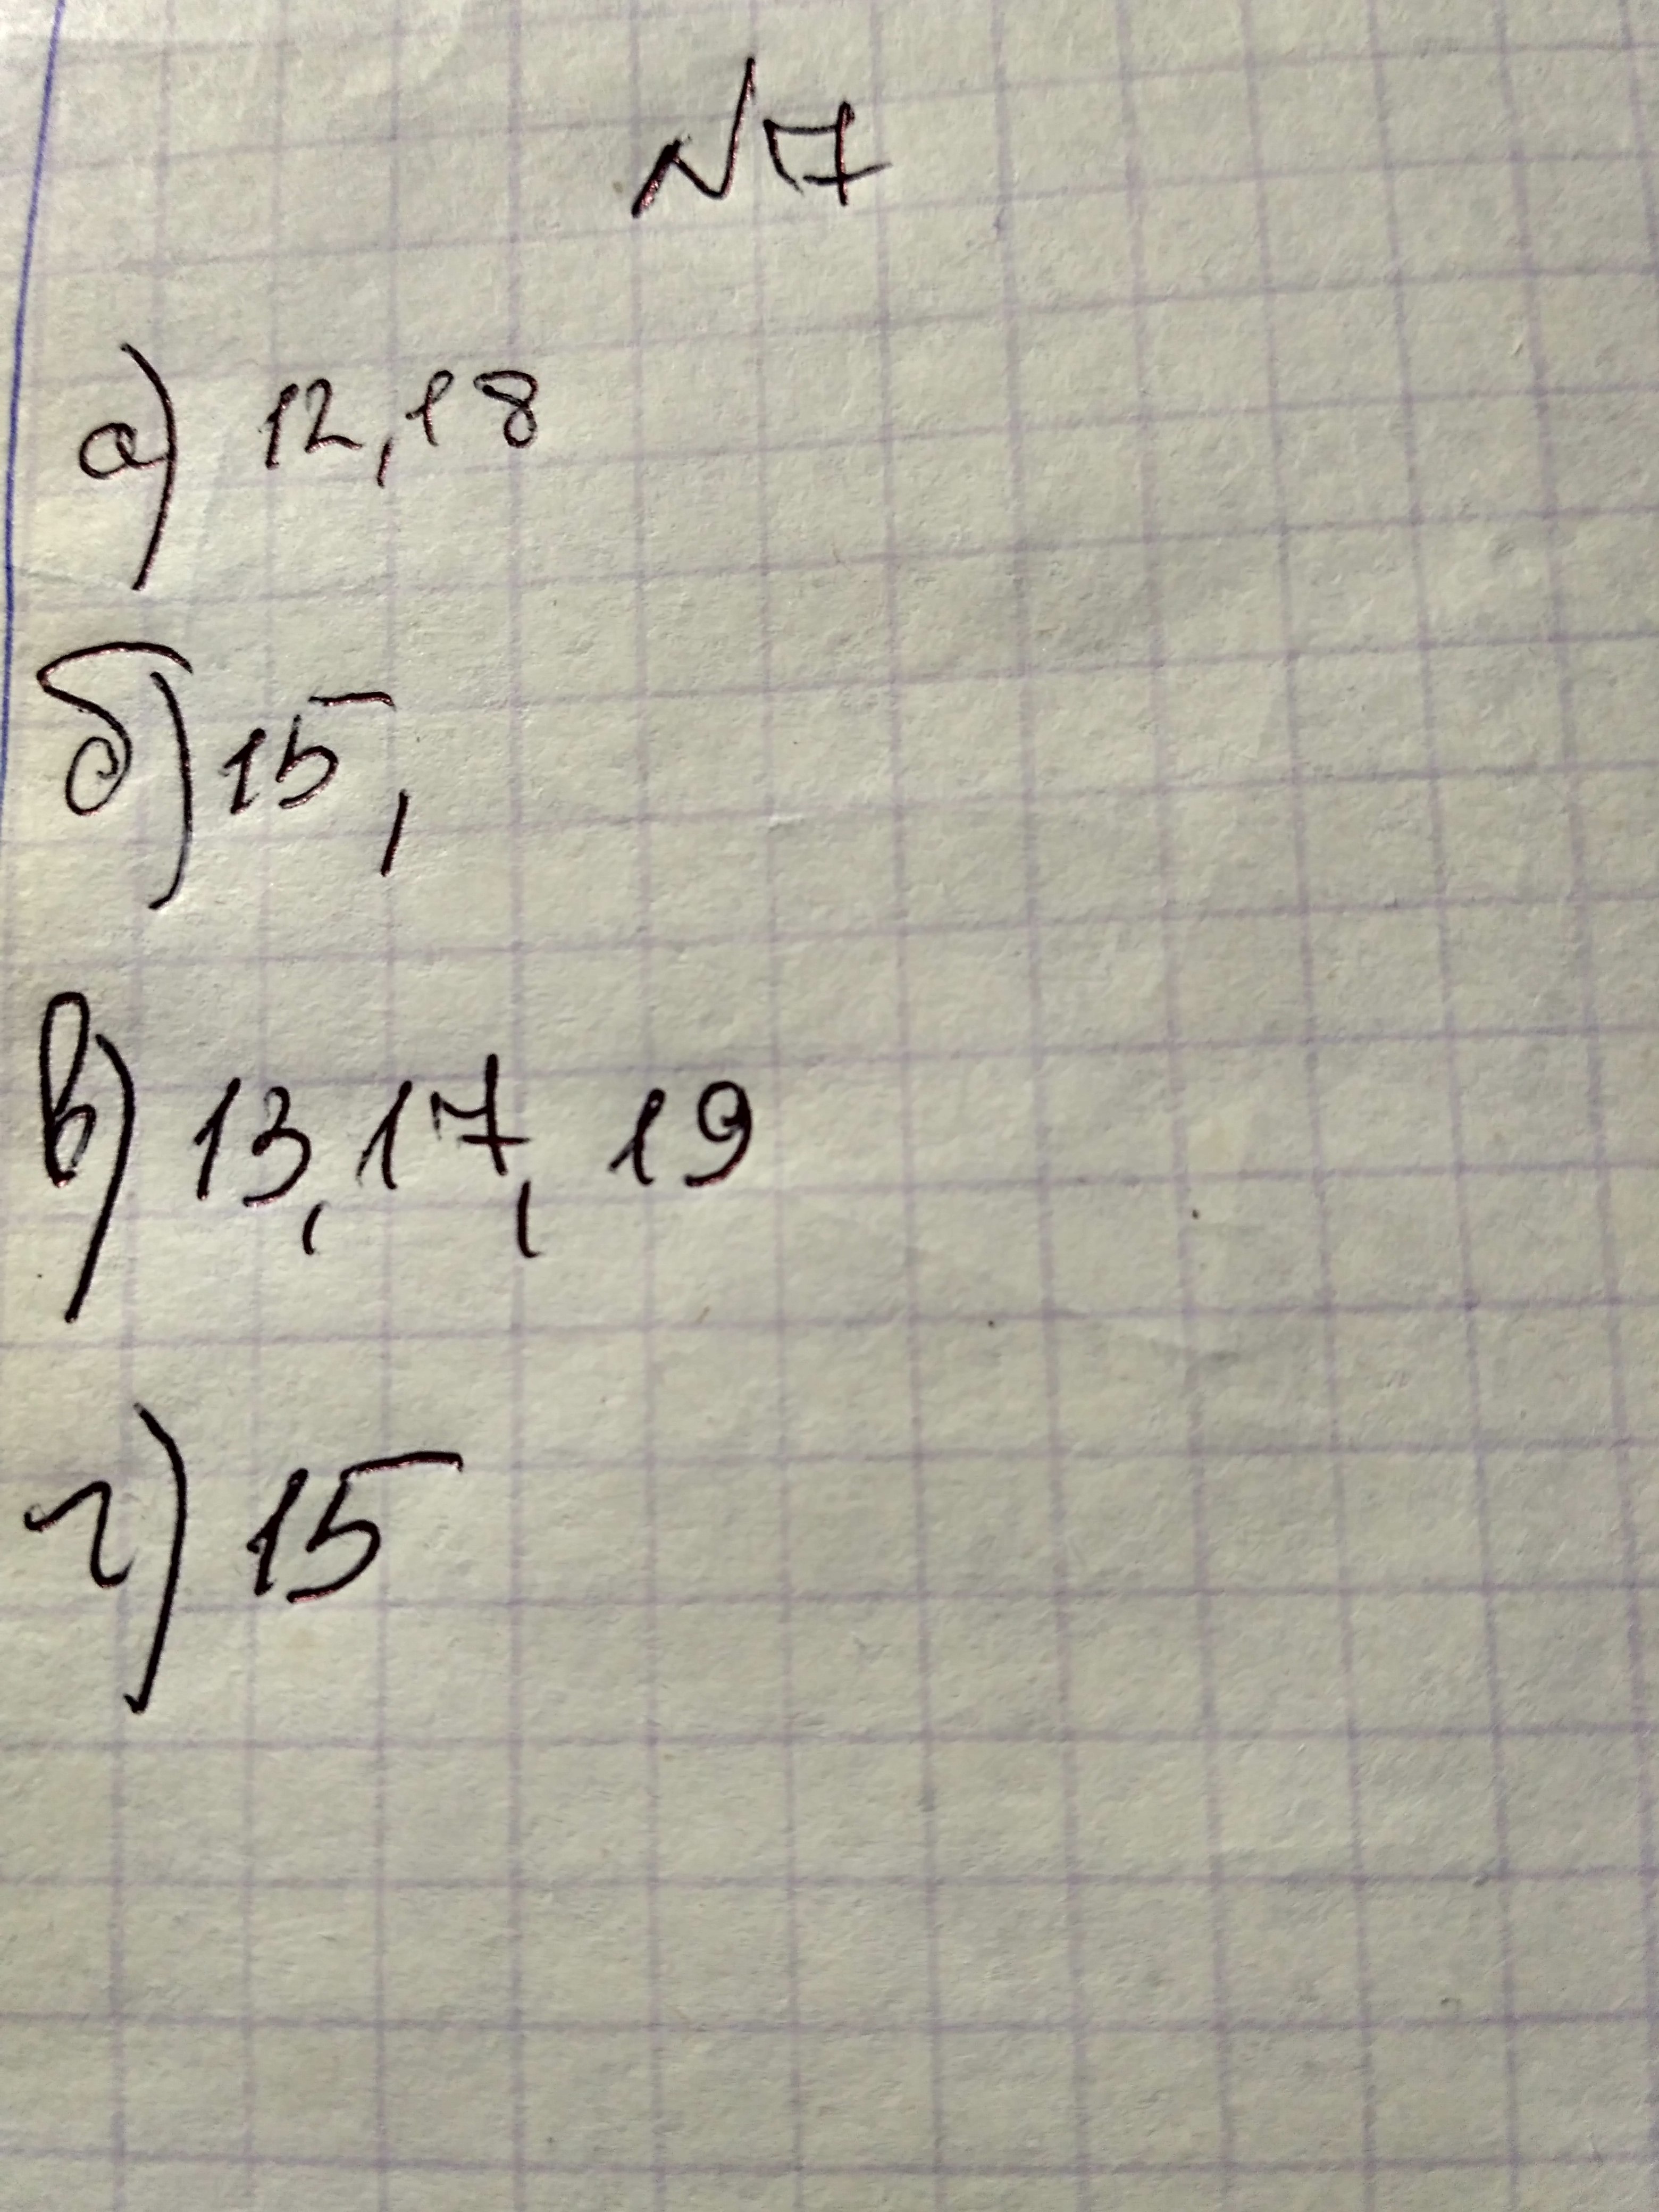 №7
а) 12, 18
б) 15,
в) 13, 17, 19
г) 15